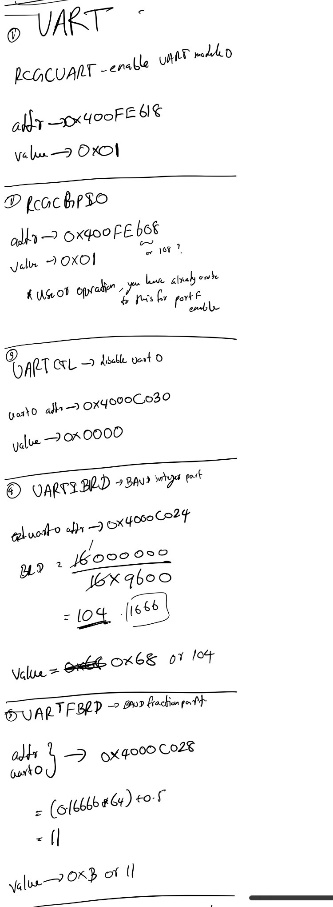 ① UART
RCGCUART - enable UART module 0
addr → 0x400FE618
value → 0x01
② RCGCGPIO
addr → 0x400FE608
or 108 ?
value → 0x01
* use or operation, you have already wrote
to this for port F
enable
③
UARTCTL → disable uart 0
uart0 addr → 0x4000C030
value → 0x0000
④ UARTIBRD → BAUD integer part
uart0 addr → 0x4000C024
BRD = 16000000
16 x 9600
= 104 .1666
Value = 0x68 or 104
⑤ UARTFBRD → BAUD fraction part
addr
uart0 } → 0x4000C028
= (0.16666 * 64) + 0.5
= 11
value → 0xB or 11